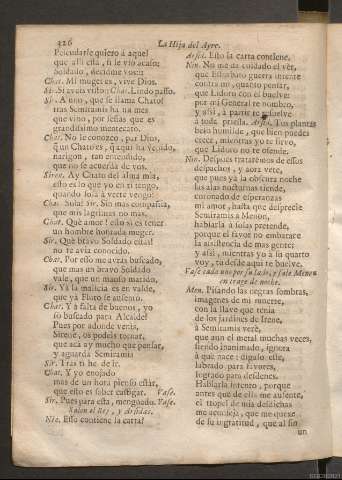 226 La Hija del Ayre.
Preguntarle quiero à aquel
que allì està, si le viò acaso;
Soldado, decidme vos::
Chat. Mi muger es, vive Dios.
Sir. Si aveis visto::
Chat. Lindo passo.
Sir. A uno, que se llama Chato?
tras Semiramis ha un mes
que vino, por señas que es
grandissimo mentecato.
Chat. No le conozco, por Dios,
que un Chato es, que aquì ha venido,
narigon, tan entendido,
que no se acuerda de vos.
Siren. Ay Chato del alma mia,
esso es lo que yo
quando iba à verte vengo:
Chat. Sola?
Sir. Sin mas compañia,
que mis lagrimas no mas.
Chat. Què amor! esso si es tener
un hombre honrada muger.
Sir. Què bravo Soldado estàs!
no te avia conocido.
Chat. Por esso me avràs buscado,
que mas un bravo Soldado
vale, que un manso marido.
Sir. Yà la malicia es en valde,
que yà Floro se ausentò.
Chat. Y à falta de buenos, yo
so buscado para Alcalde?
Pues por adonde venis,
Sirene, os podeis tornar,
que acà ay mucho que pensar,
y aguarda Semiramis
Sir. Tras ti he de ir.
Chat. Y yo enojado
mas de un hora pienso estàr,
que esto es saber castigar. Vase.
Sir. Pues para esta, menguado. Vase.
Salen el Rey, y Arsidas.
Nin. Esso contiene la carta?
Arsid. Esto la carta contiene.
Nin. No me dà cuidado el vèr,
que Estorbato guerra intente
contra mi, quanto pensar,
que Lidoro con èl buelve:
por mi General te nombro,
y assi, à partir te resuelve
à toda priessa.
Arsid. Tus plantas
beso humilde, que bien puedes
creer, mientras yo te sirvo,
que Lidoro no te ofende.
Nin. Despues trataremos de essos
despachos, y aora vete,
que pues yà la obscura noche
las alas nocturnas tiende,
coronado de esperanzas
mi amor, hasta que desprecie
Semiramis à Menon,
hablarla à solas pretende,
porque el favor no embarace
la assistencia de mas gente:
y assi, mientras yo à su quarto
voy, tu desde aqui te buelve.
Vase cada uno por su lado, y sale Menon
en trage de noche.
Men. Pisando las negras sombras,
imagenes de mi muerte,
con la llave que tenia
de los jardines de Irene,
à Semiramis verè,
que aun el metal muchas veces,
siendo inanimado, ignora
à què nace: digalo este,
labrado para favores,
logrado para desdenes.
Hablarla intento, porque
antes que de ella me ausente,
el tropel de mis desdichas
me aconseja, que me quexe
de su ingratitud, que al sin
un